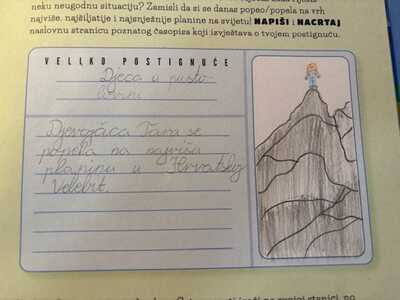 neku neugodnu situaciju? Zamisli da si se danas popeo/popela na vrh
najviše, najšiljatije i najsnježnije planine na svijetu! NAPIŠI i NACRTAJ
naslovnu stranicu poznatog časopisa koji izvještava o tvojem postignuću.
VELIKO POSTIGNUĆE
Djeca u pusto-
lovini
Djevojčica Tara se
popela na najvišu
planinu u Hrvatskoj
Velebit.